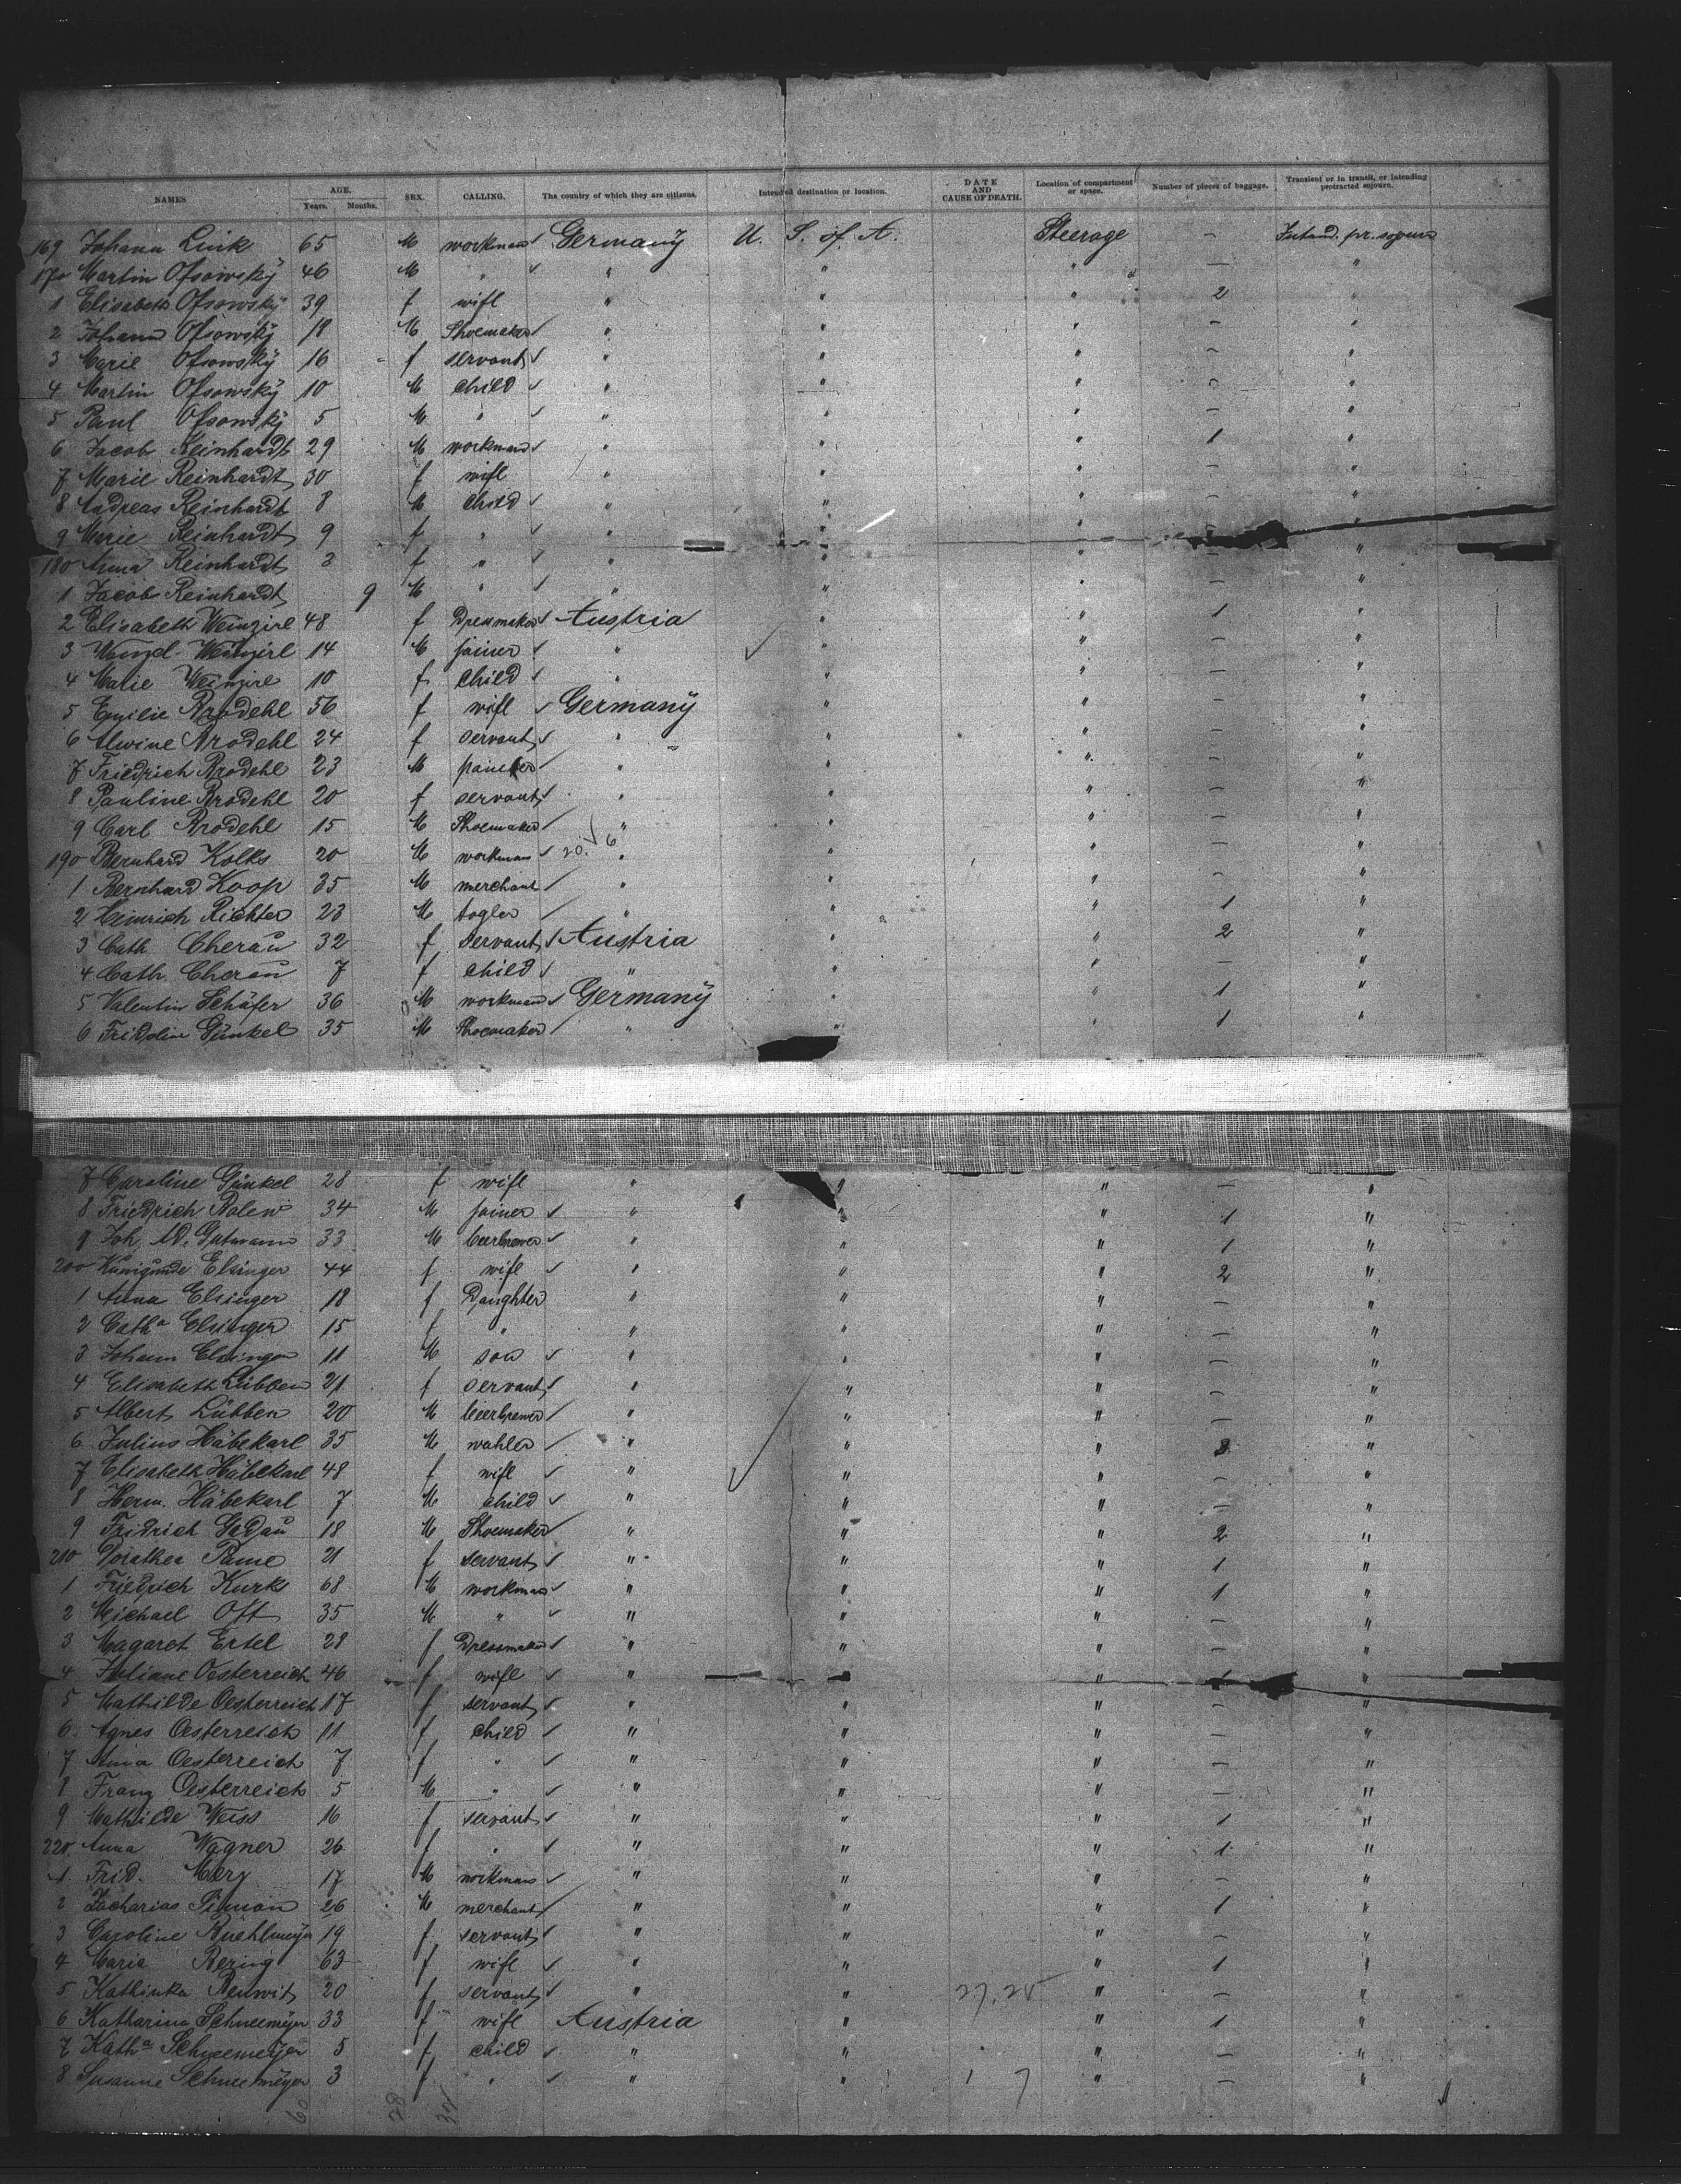 NAMES AGE. Years. Months. SEX. CALLING. The country of which they are citizens. Intended destination or location. DATE AND CAUSE OF DEATH. Location of compartment or space. Number of pieces of baggage. Transient or in transit, or intending protracted sojourn.
169 Johann Link 65 M workman Germany U. S. of A. Steerage — Intend. pr. sojourn
170 Martin Ofsowsky 46 M " " " " — "
1 Elisabeth Ofsowsky 39 f wife " " " 2 "
2 Johann Ofsowsky 18 M Shoemaker " " " — "
3 Marie Ofsowsky 16 f servant " " " — "
4 Martin Ofsowsky 10 M child " " " — "
5 Paul Ofsowsky 5 M " " " " — "
6 Jacob Reinhardt 29 M workman " " " 1 "
7 Marie Reinhardt 30 f wife " " " — "
8 Andreas Reinhardt 8 M child " " " — "
9 Marie Reinhardt 9 f " " " " — "
180 Anna Reinhardt 3 f " " " " — "
1 Jacob Reinhardt 9 M " " " " — "
2 Elisabeth Weinzirl 48 f Dressmaker Austria " " 1 "
3 Wenzel Weinzirl 14 M joiner " " " — "
4 Marie Weinzirl 10 f child " " " — "
5 Emilie Brodehl 56 f wife Germany " " — "
6 Alwine Brodehl 24 f servant " " " — "
7 Friedrich Brodehl 23 M painter " " " — "
8 Pauline Brodehl 20 f servant " " " — "
9 Carl Brodehl 15 M Shoemaker " " " — "
190 Bernhard Kolks 20 M workman 20. 6 " " " — "
1 Bernhard Koop 35 M merchant " " " — "
2 Heinrich Richter 23 M " " " 1 "
3 Cath Cherau 32 f servant Austria " " 2 "
4 Cath. Cherau 7 f child " " " — "
5 Valentin Schäfer 36 M workman Germany " " 1 "
6 Fridolin Günkel 35 M Shoemaker " " " 1 "
7 Caroline Günkel 28 f wife " " " — "
8 Friedrich Balew 34 M joiner " " " 1 "
9 Joh. Ad. Gutmann 33 M beerbrewer " " " 1 "
200 Kunigunde Elsinger 44 f wife " " " 2 "
1 Anna Elsinger 18 f Daughter " " " — "
2 Catha Elsinger 15 f " " " " — "
3 Johann Elsinger 11 M son " " " — "
4 Elisabeth Lübben 21 f servant " " " — "
5 Albert Lübben 20 M beerbrewer " " " — "
6 Julius Häbekarl 35 M wahler " " " 3 "
7 Elisabeth Häbekarl 48 f wife " " " — "
8 Herm. Häbekarl 7 M child " " " — "
9 Fridrich Gadau 18 M Shoemaker " " " 2 "
210 Dorathea Pame 21 f servant " " " 1 "
1 Friedrich Kurk 68 M workman " " " 1 "
2 Michael Oft 35 M " " " " — "
3 Magaret Ertel 28 f Dressmaker " " " — "
4 Juliane Oesterreich 46 f wife " " " 1 "
5 Mathilde Oesterreich 17 f servant " " " — "
6 Agnes Oesterreich 11 f child " " " — "
7 Anna Oesterreich 7 f " " " " — "
8 Franz Oesterreich 5 M " " " " — "
9 Mathilde Weiss 16 f servant " " " 1 "
220 Anna Wagner 26 f " " " " 1 "
1 Frid. Merz 17 M workman " " " — "
2 Zacharias Simon 26 M merchant " " " 1 "
3 Caroline Buehlmeyer 19 f servant " " " — "
4 Marie Bering 63 f wife " " " 1 "
5 Kathinka Renwit 20 f servant " " 27.25 " — "
6 Katharina Schneemeyer 33 f wife Austria " " 1 "
7 Katha Schneemeyer 5 f child " " " — "
8 Susanne Schneemeyer 3 f " " " 1 7 " — "
60 28 32